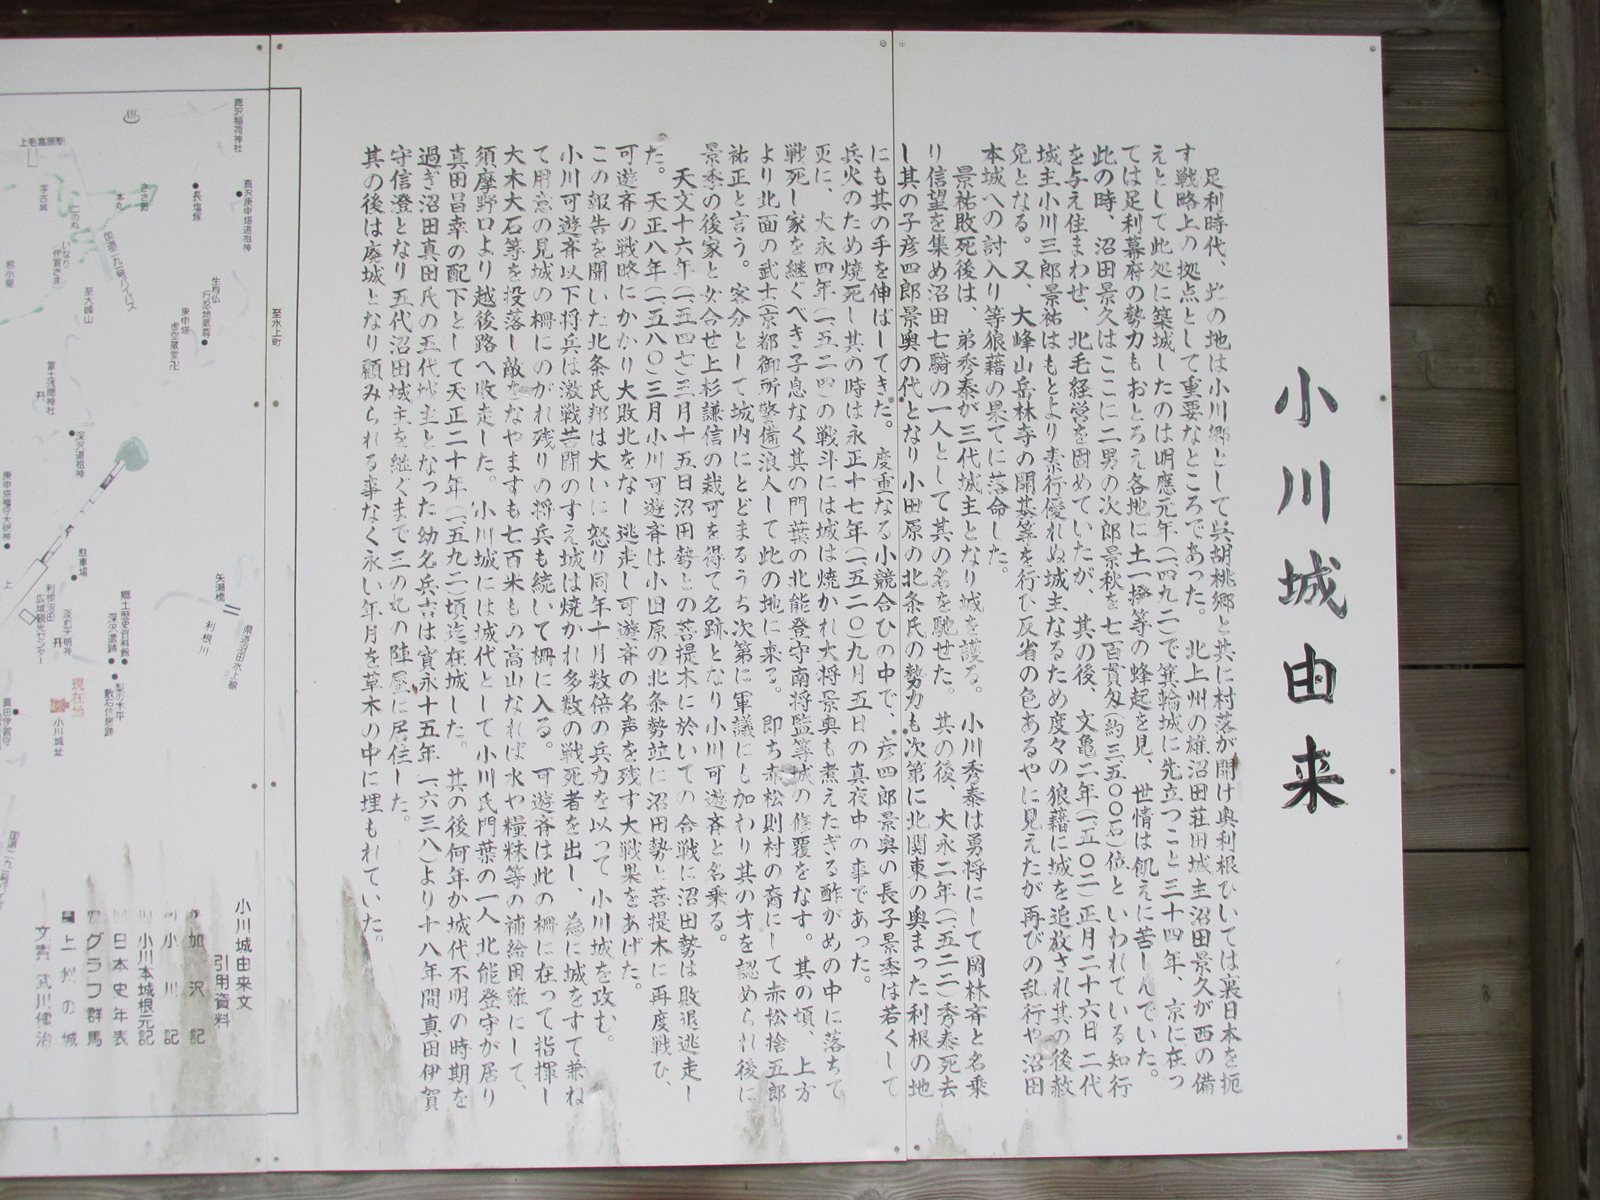 小川城由来
足利時代、此の地は小川郷として呉胡桃郷と共に村落が開け奥利根ひいては裏日本を扼
す戦略上の拠点として重要なところであった。 北上州の雄沼田荘田城主沼田景久が西の備
えとして此処に築城したのは明應元年(一四九二)で箕輪城に先立つこと三十四年、京に在っ
ては足利幕府の勢力もおとろえ各地に土一揆等の蜂起を見、世情は飢えに苦しんでいた。
此の時、沼田景久はここに二男の次郎景秋を七百貫匁(約三五〇〇石)位といわれている知行
を与え住まわせ、北毛経営を固めていたが、其の後、文亀二年(一五〇二)正月二十六日二代
城主小川三郎景祐はもとより素行優れぬ城主なるため度々の狼藉に城を追放され其の後赦
免となる。又、大峰山岳林寺の開基等を行ひ反省の色あるやに見えたが再びの乱行や沼田
本城への討入り等狼藉の果てに落命した。
景祐敗死後は、弟秀泰が三代城主となり城を護る。 小川秀泰は勇将にして岡林斉と名乗
り信望を集め沼田七騎の一人として其の名を馳せた。 其の後、大永二年(一五二二)秀泰死去
し其の子彦四郎景奥の代となり小田原の北条氏の勢力も次第に北関東の奥まった利根の地
にも其の手を伸ばしてきた。度重なる小競合ひの中で、彦四郎景奥の長子景季は若くして
兵火のため焼死し其の時は永正十七年(一五二〇)九月五日の真夜中の事であった。
更に、大永四年(一五二四)の戦斗には城は焼かれ大将景奥も煮えたぎる酢がめの中に落ちて
戦死し家を継ぐべき子息なく其の門葉の北能登守南将監等城の修覆をなす。其の頃、上方
より北面の武士(京都御所警備)浪人して此の地に来る。即ち赤松則村の裔にして赤松捨五郎
祐正と言う。客分として城内にとどまるうち次第に軍議にも加わり其のオを認められ後に
景季の後家と妛合せ上杉謙信の裁可を得て名跡となり小川可遊斉と名乗る。
天文十六年(一五四七)三月十五日沼田勢との菩提木に於いての合戦に沼田勢は敗退逃走し
た。天正八年(一五八〇)三月小川可遊斉は小田原の北条勢竝に沼田勢と菩提木に再度戦ひ、
可遊斉の戦略にかかり大敗北をなし逃走し可遊斉の名声を残す大戦果をあげた。
この報告を聞いた北条氏邦は大いに怒り同年十月数倍の兵力を以って小川城を攻む。
小川可遊斉以下将兵は激戦苦闘のすえ城は焼かれ多数の戦死者を出し、為に城をすて兼ね
て用意の見城の柵にのがれ残りの将兵も続いて柵に入る。可遊斉は此の柵に在って指揮し
大木大石等を投落し敵をなやますも七百米もの高山なれば水や糧秣等の補給困難にして、
須摩野口より越後路へ敗走した。小川城には城代として小川氏門葉の一人北能登守が居り
真田昌幸の配下として天正二十年(一五九二)頃迄在城した。其の後何年か城代不明の時期を
過ぎ沼田真田氏の五代城主となった幼名兵吉は寛永十五年(一六三八)より十八年間真田伊賀
守信澄となり五代沼田城主を継ぐまで三の丸の陣屋に居住した。
其の後は廃城となり顧みられる事なく永い年月を草木の中に埋もれていた。
真沢稲荷神社
真沢庚申塔道祖神
長塩塚
上毛高原駅
字古城
二の丸
本丸
ささ郭
いなり
国道二九一号バイパス
至大峰山
生身仏
行忍地蔵尊
庚申塔
虚空蔵堂
至水上町
冨士浅間神社
深沢道祖神
駐車場
利根沼田
広域観光センター
郷土歴史資料館
深沢遺跡
梨の木平
敷石住居跡
矢瀬橋
利根川
県道沼田水上線
現在地
小川城址
真田伊賀守
小川城由来文
引用資料
加沢記
小川記
小川本城根元記
日本史年表
グラフ群馬
上州の城
文責 武川健治